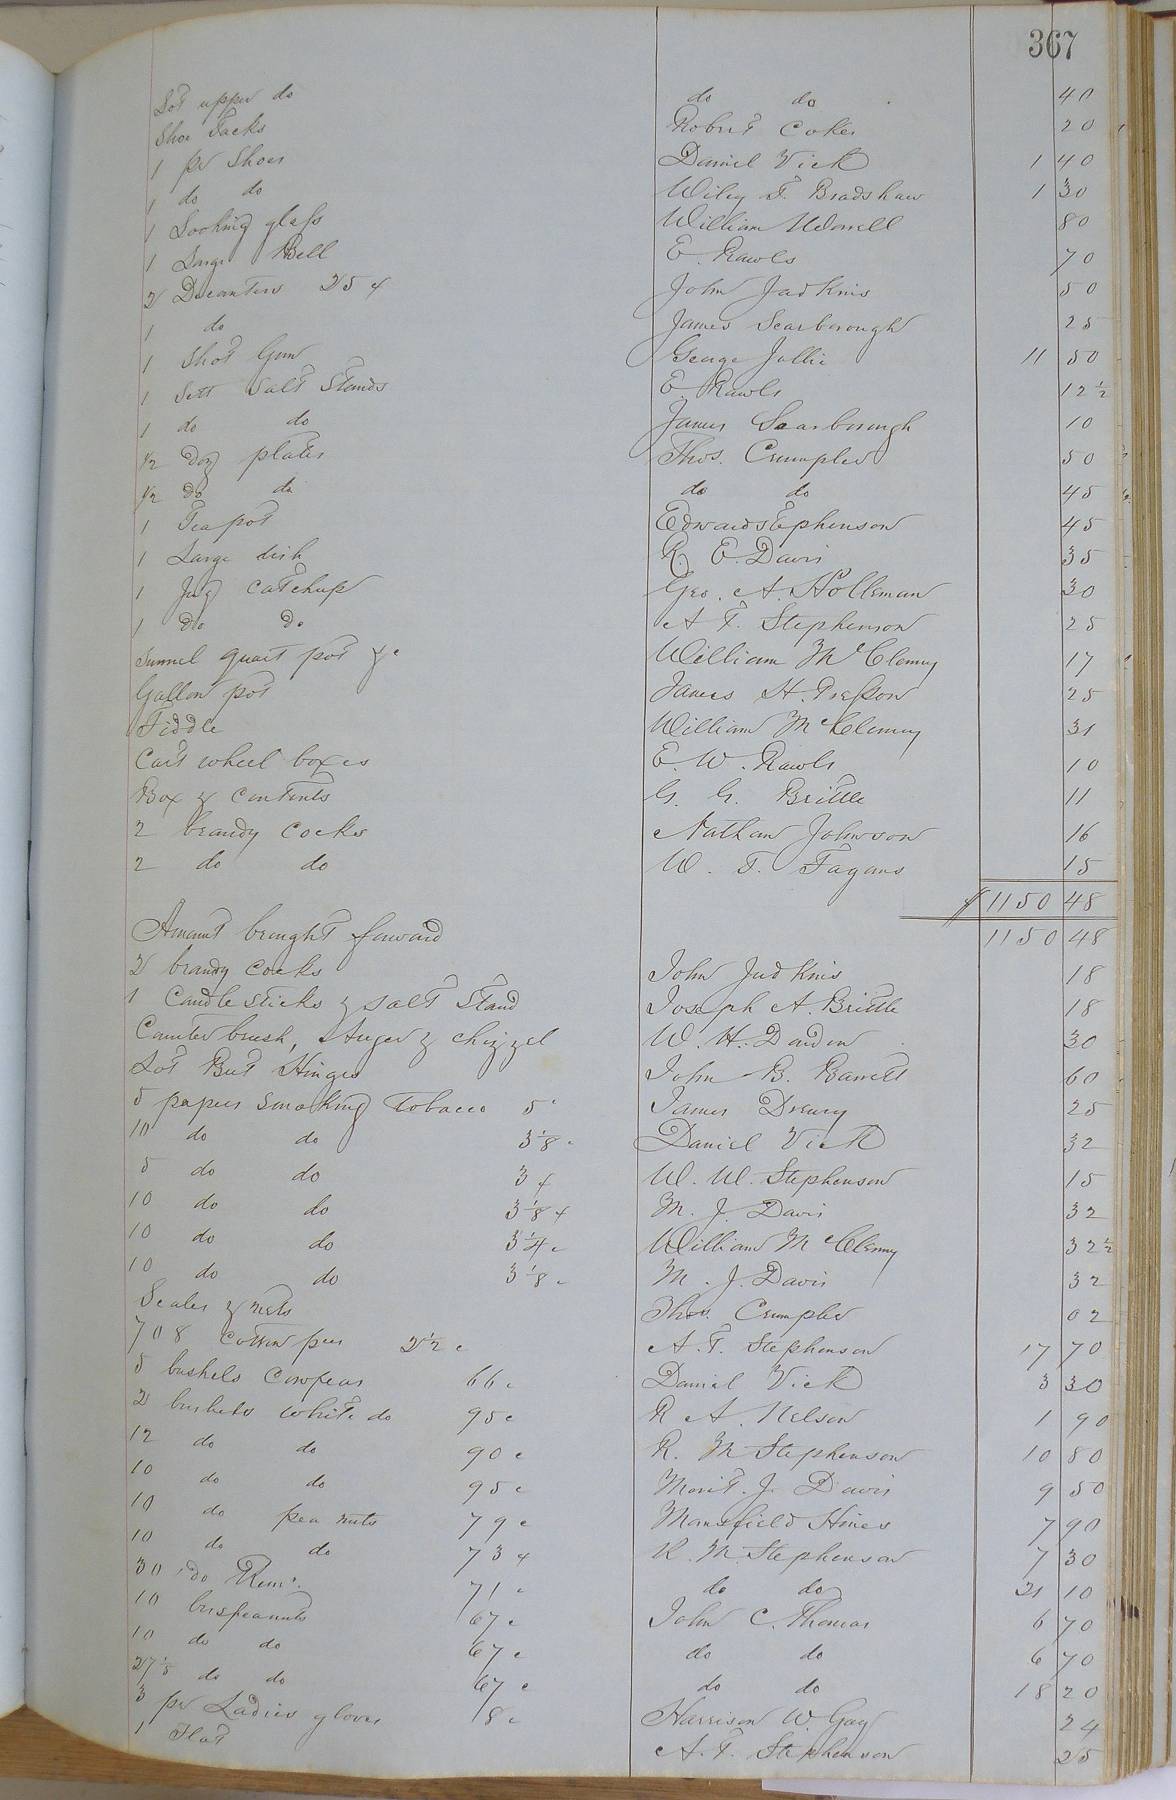 367
Lot upper do do do 40
Shoe Tacks Robert Coker 20
1 pr Shoes Daniel Vick 1 40
1 do do Wiley T. Bradshaw 1 30
1 Looking glass William 80
1 Large Bell E. Rawls 70
2 Decanters 25 ¢ John Judkins 50
1 do James Scarborough 25
1 Shot Gun George Jollie 11 50
1 Sett Salt Stands E. Rawls 12 1/2
1 do do James Scarborough 10
1/2 Doz plates Thos. Crumpler 50
1/2 do do do do 45
1 Tea pot Edward Stephenson 45
1 Large dish R. E. Davis 35
1 Jug Catchup Geo. A. Holleman 30
1 Do Do A. T. Stephenson 25
Funnel quart pot &c William McClenny 17
Gallon pot James H. Presson 25
Fiddle William McClenny 31
Cart wheel boxes E. W. Rawls 10
Box & Contents G. G. Brittle 11
2 brandy Cocks Nathan Johnson 16
2 do do W. T. Fagans 15
$ 1150 48
Amount brought forward 1150 48
2 brandy cocks John Judkins 18
1 Candle Sticks & salt Stand Joseph A. Brittle 18
Counter brush, Auger & Chizzel W. H. Darden 30
Lot But Hinges John B. Barrett 60
5 papers Smoking tobacco 5c James Drewry 25
10 do do 3 1/8 c Daniel Vick 32
5 do do 3 ¢ W. W. Stephenson 15
10 do do 3 1/8 ¢ M. J. Davis 32
10 do do 3 1/4 c William McClenny 32 1/2
10 do do 3 1/8 c M. J. Davis 32
Scales & nests Thos. Crumpler 02
708 Cotton per 2 1/2 c A. T. Stephenson 17 70
5 bushels Cowpeas 66 c Daniel Vick 3 30
2 bushels white do 95 c R. A. Nelson 1 90
12 do do 90 c R. M Stephenson 10 80
10 do do 95 c J. Davis 9 50
10 do pea nuts 79 c Mansfield Hines 7 90
10 do do 73 ¢ R. M. Stephenson 7 30
30 do Remr. 71 c do do 21 10
10 bus peanuts 67 c John C. Thomas 6 70
10 do do 67 c do do 6 70
27 1/8 do do 67 c do do 18 20
3 pr Ladies gloves 8 c Harrison W. Gay 24
1 Flat A. T. Stephenson 25